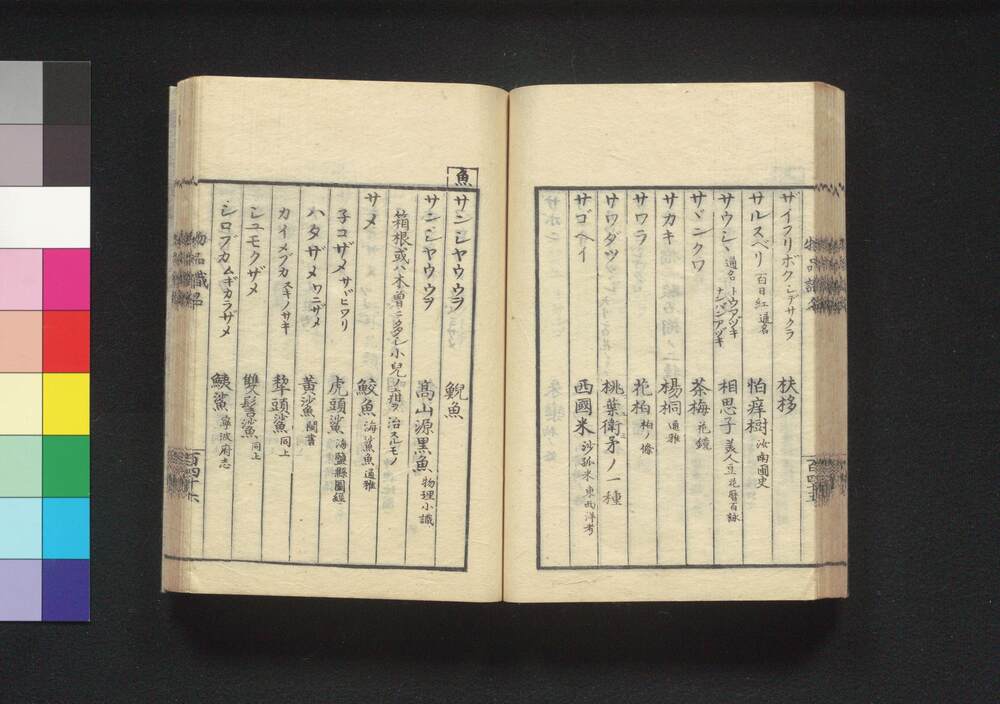 ザイフリボク シデサクラ 扶栘
サルスベリ 百日紅通名 怕痒樹 汝南圃史
サウシヽ 通名トウアヅキ ナンバンアヅキ 相思子 美人豆 花暦百詠
サヾンクワ 茶梅 花鏡
サカキ 楊桐 通雅
サワラ 花柏 柏ノ條
サワダツ 桃葉衛矛ノ一種
サゴベイ 西國米 沙孤米 東西洋考
物品識名
百四十五
魚
サンシヤウウヲ 鯢魚
サンシヤウウヲ 髙山源黒魚 物理小識
箱根或ハ木曽ニ多シ小兒ノ疳ヲ治スルモノ
サメ 鮫魚 海鯊魚 通雅
子コザメ サヾヒワリ 虎頭鯊 海鹽縣圖經
ハタザメ ワニザメ 黄鯊 閩書
カイメブカ スキノサキ 犂頭鯊 同上
シユモクザメ 雙髻鯊魚 同上
シロブカ ムギカラザメ 鮧鯊 寧波府志
物品識名
百四十六